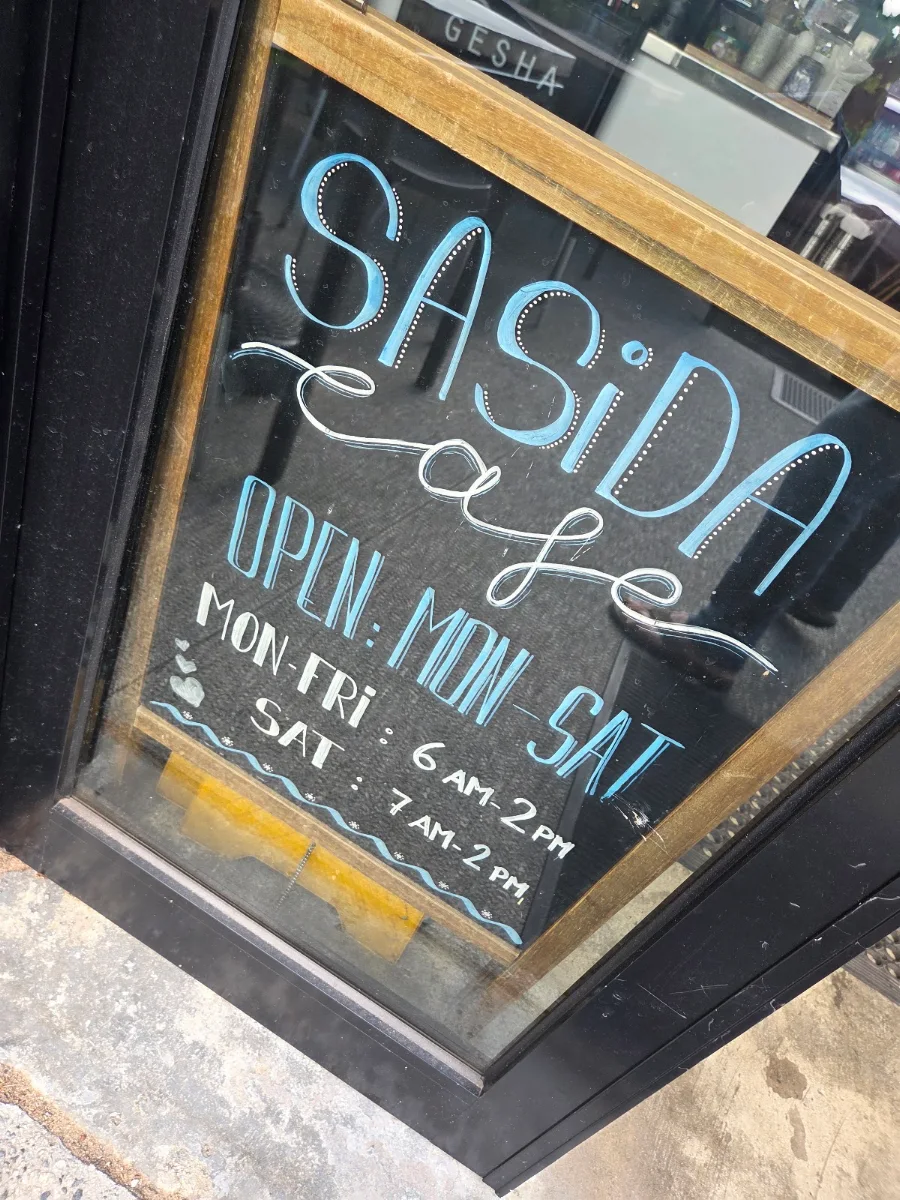 GESHA
SASiDA
cafe
OPEN: MON-SAT
MON-FRi : 6 AM-2 PM
SAT : 7 AM-2 PM